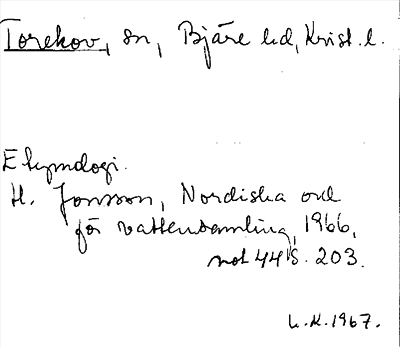 Torekov, sn, Bjäre hd, Krist. l.
Etymologi.
H. Jonsson, Nordiska ord
för vattensamling, 1966,
not 44 s. 203.
L.K. 1967.